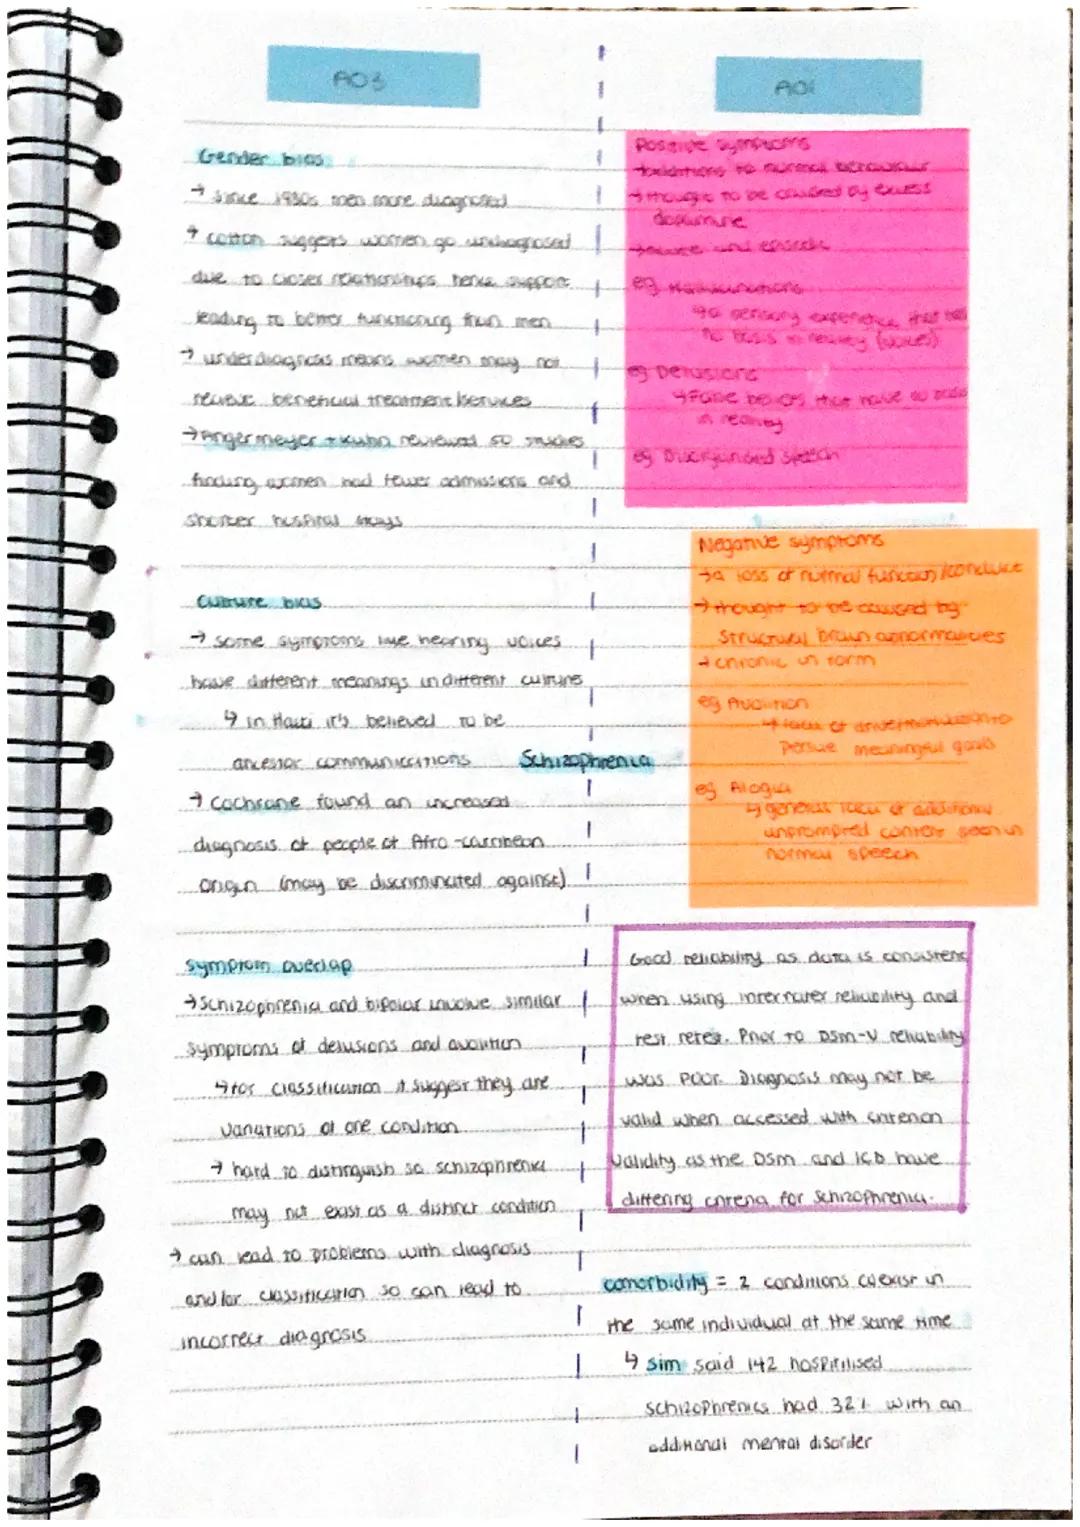 AO3
Gender bias
→ since 1980s men more diagnosed
→ cotton suggests women go undiagnosed
due to closer relationships hence support
leading to better functioning than men
→ underdiagnosis means women may not
recieve beneficial treatment/services
→ Angermeyer + Kuhn reviewed 50 studies
finding women had fewer admissions and
shorter hospital stays
culture bias
→ some symptoms like hearing voices
have different meanings in different cultures
↳ in Haiti it's believed to be
ancestor communications
→ Cochrane found an increased
diagnosis of people of Afro-carribean
origin (may be discriminated against)
symptom overlap
→ Schizophrenia and bipolar involve similar
symptoms of delusions and avolition
↳ for classification it suggest they are
variations of one condition
→ hard to distinguish so schizophrenia
may not exist as a distinct condition
→ can lead to problems with diagnosis
and/or classification so can lead to
incorrect diagnosis
Schizophrenia
AO1
Positive symptoms
→ additions to normal behaviour
→ thought to be caused by excess
dopamine
→ acute and episodic
eg Hallucinations
↳ a sensory experience that has
no basis in reality (voices)
eg Delusions
↳ False beliefs that have no basis
in reality
eg Disorganised speech
Negative symptoms
→ a loss of normal function/conduct
→ thought to be caused by
structural brain abnormalities
→ chronic in form
eg Avolition
↳ lack of drive/motivation to
persue meaningful goals
eg Alogia
↳ general lack of additional
unprompted content seen in
normal speech
Good reliability as data is consistent
when using interrater reliability and
test retest. Prior to DSM-V reliability
was poor. Diagnosis may not be
valid when accessed with criterion
validity as the DSM and ICD have
differing criteria for Schizophrenia.
comorbidity = 2 conditions coexist in
the same individual at the same time
↳ Sim said 142 hospitilised
schizophrenics had 32% with an
additional mental disorder